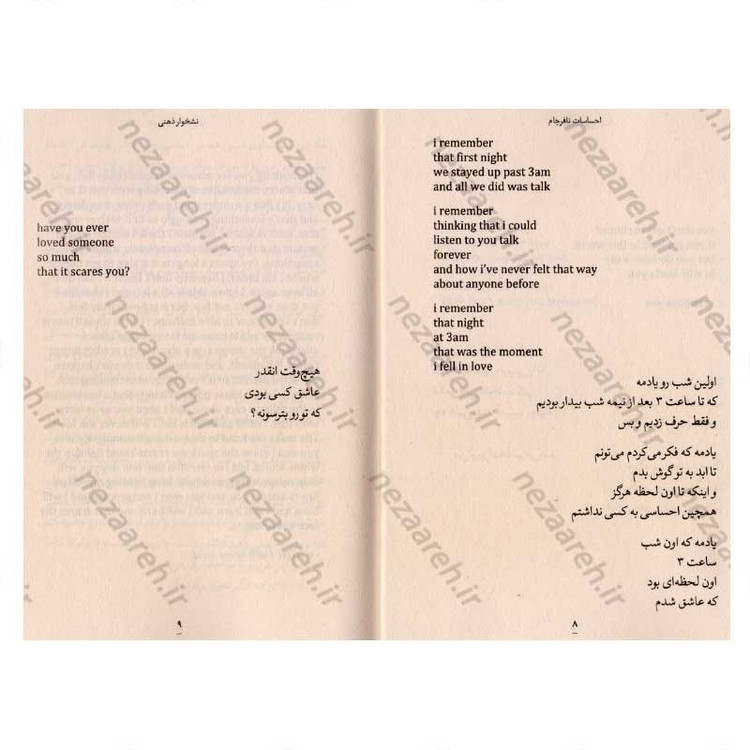 احساسات نافرجام
i remember
that first night
we stayed up past 3am
and all we did was talk
i remember
thinking that i could
listen to you talk
forever
and how i've never felt that way
about anyone before
i remember
that night
at 3am
that was the moment
i fell in love
اولین شب رو یادمه
که تا ساعت ۳ بعد از نیمه شب بیدار بودیم
و فقط حرف زدیم و بس
یادمه که فکر می‌کردم می‌تونم
تا ابد به تو گوش بدم
و اینکه تا اون لحظه هرگز
همچین احساسی به کسی نداشتم
یادمه که اون شب
ساعت ۳
اون لحظه‌ای بود
که عاشق شدم
۸
نشخوار ذهنی
have you ever
loved someone
so much
that it scares you?
هیچ‌وقت انقدر
عاشق کسی بودی
که تو رو بترسونه؟
۹
nezaareh.ir
nezaareh.ir
nezaareh.ir
nezaareh.ir
nezaareh.ir
nezaareh.ir
nezaareh.ir
nezaareh.ir